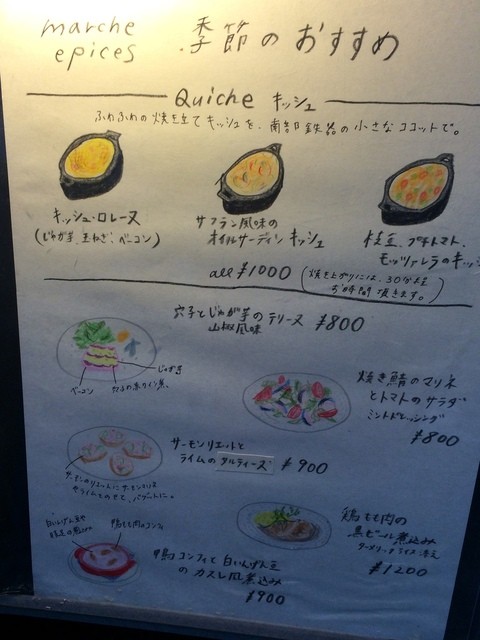 marche
epices
季節のおすすめ
Quiche キッシュ
ふわふわの焼き立てキッシュを、南部鉄器の小さなココットで。
キッシュ・ロレーヌ
(じゃが芋、玉ねぎ、ベーコン)
サフラン風味の
オイルサーディンキッシュ
枝豆、プチトマト、
モッツァレラのキッシ
all ¥1000
(焼き上がりには、30分程
お時間頂きます。)
穴子とじゃが芋のテリーヌ ¥800
山椒風味
じゃが芋
ベーコン
穴子の赤ワイン煮
焼き鯖のマリネ
とトマトのサラダ
ミントドレッシング
¥800
サーモンリエットと
ライムのタルティーヌ ¥900
鶏もも肉の
黒ビール煮込み
ターメリックライス添え
¥1200
白いんげん豆
鴨もも肉のコンフィ
鴨コンフィと白いんげん豆
のカスレ風煮込み
¥900